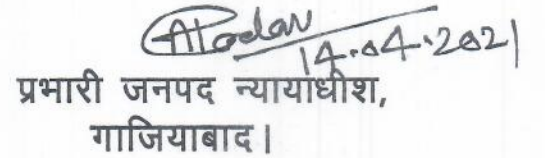 14.04.2021
प्रभारी जनपद न्यायाधीश,
गाजियाबाद।